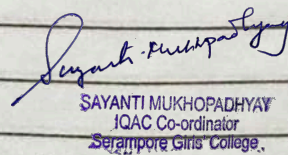 Sayanti Mukhopadhyay
SAYANTI MUKHOPADHYAY
IQAC Co-ordinator
Serampore Girls' College